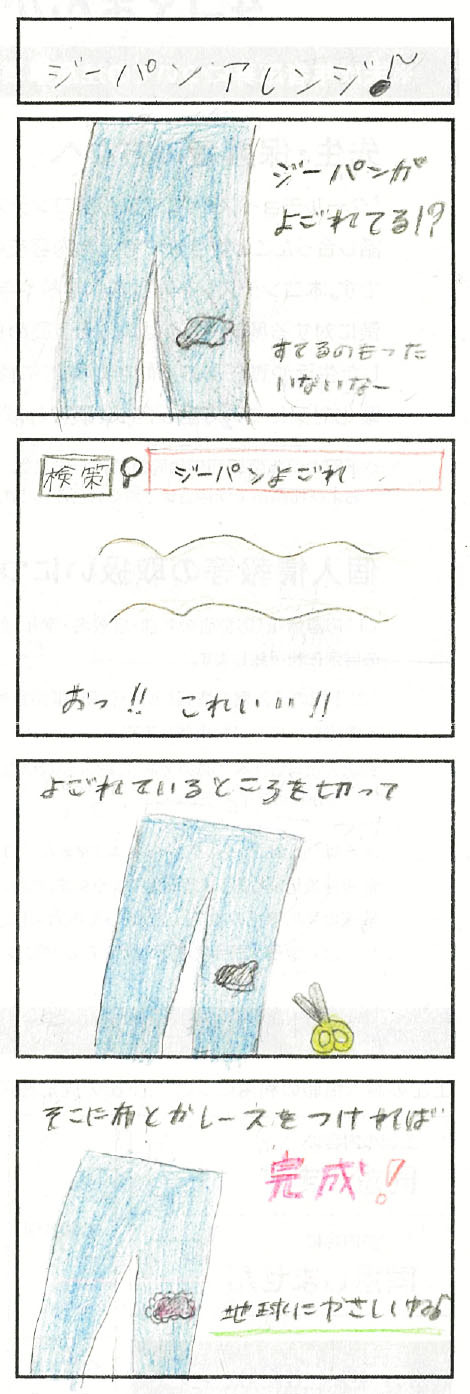 ジーパンアレンジ♪
ジーパンが
よごれてる!?
すてるのもった
いないなー
検策
ジーパンよごれ
おっ!! これいい!!
よごれているところを切って
そこに布とかレースをつければ
完成!
地球にやさしいね♪